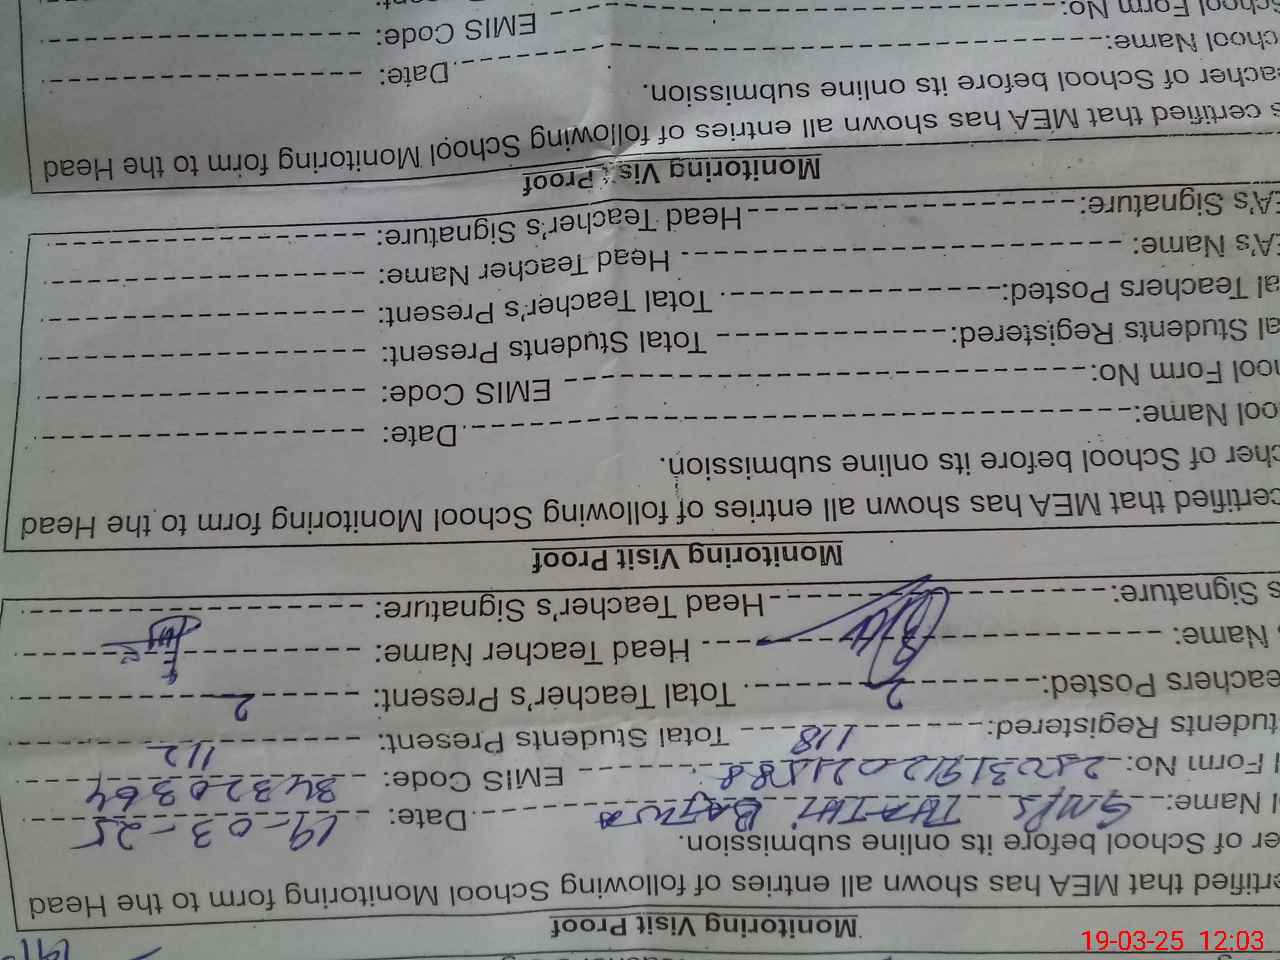 Monitoring Visit Proof
ertified that MEA has shown all entries of following School Monitoring form to the Head
er of School before its online submission.
l Name: GMPS THATHI BAJWA Date: 19-03-25
l Form No: EMIS Code: 34320364
tudents Registered: 118 Total Students Present: 112
eachers Posted: 2 Total Teacher's Present: 2
Name: Head Teacher Name:
s Signature: Head Teacher's Signature:
Monitoring Visit Proof
certified that MEA has shown all entries of following School Monitoring form to the Head
cher of School before its online submission.
ool Name: Date:
ool Form No: EMIS Code:
al Students Registered: Total Students Present:
al Teachers Posted: Total Teacher's Present:
EA's Name: Head Teacher Name:
EA's Signature: Head Teacher's Signature:
Monitoring Vis Proof
s certified that MEA has shown all entries of following School Monitoring form to the Head
eacher of School before its online submission.
chool Name: Date:
School Form No: EMIS Code:
19-03-25 12:03